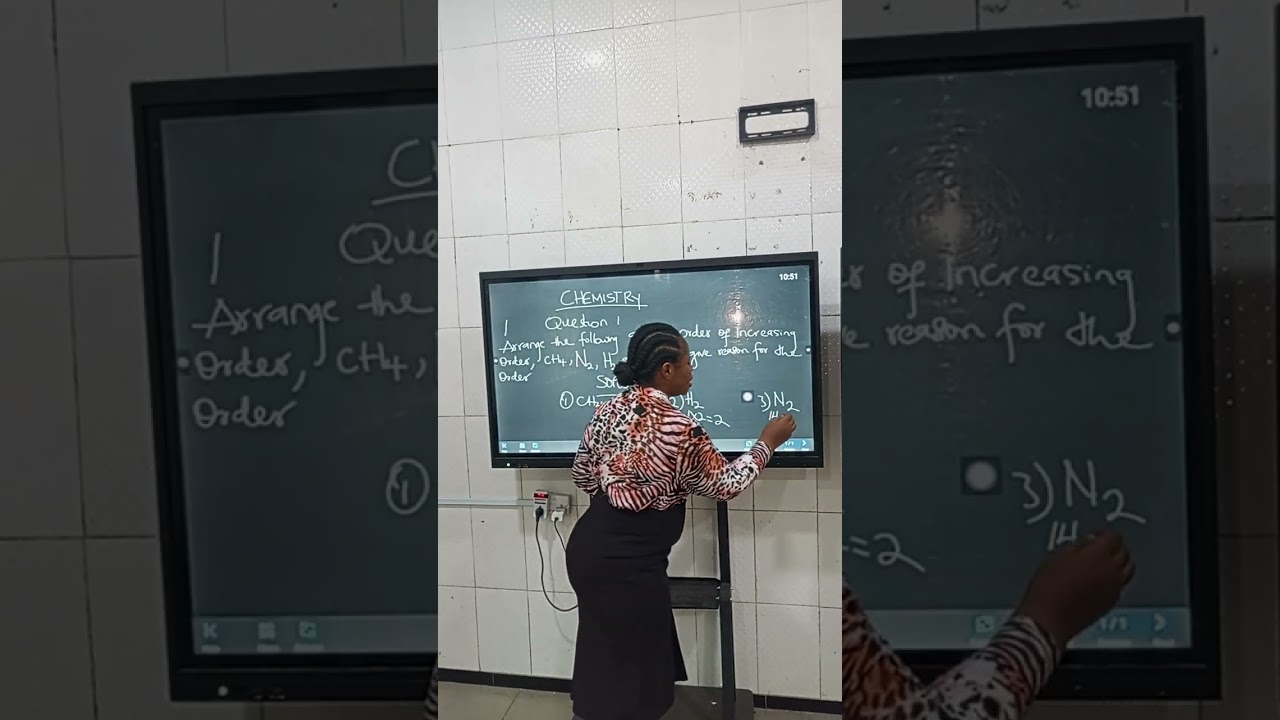 10:51
CHEMISTRY
1 Question 1
Arrange the following order of Increasing
Order, CH4, N2, H give reason for the
Order
① CH 2) H2 3) N2
=2 14
1/1